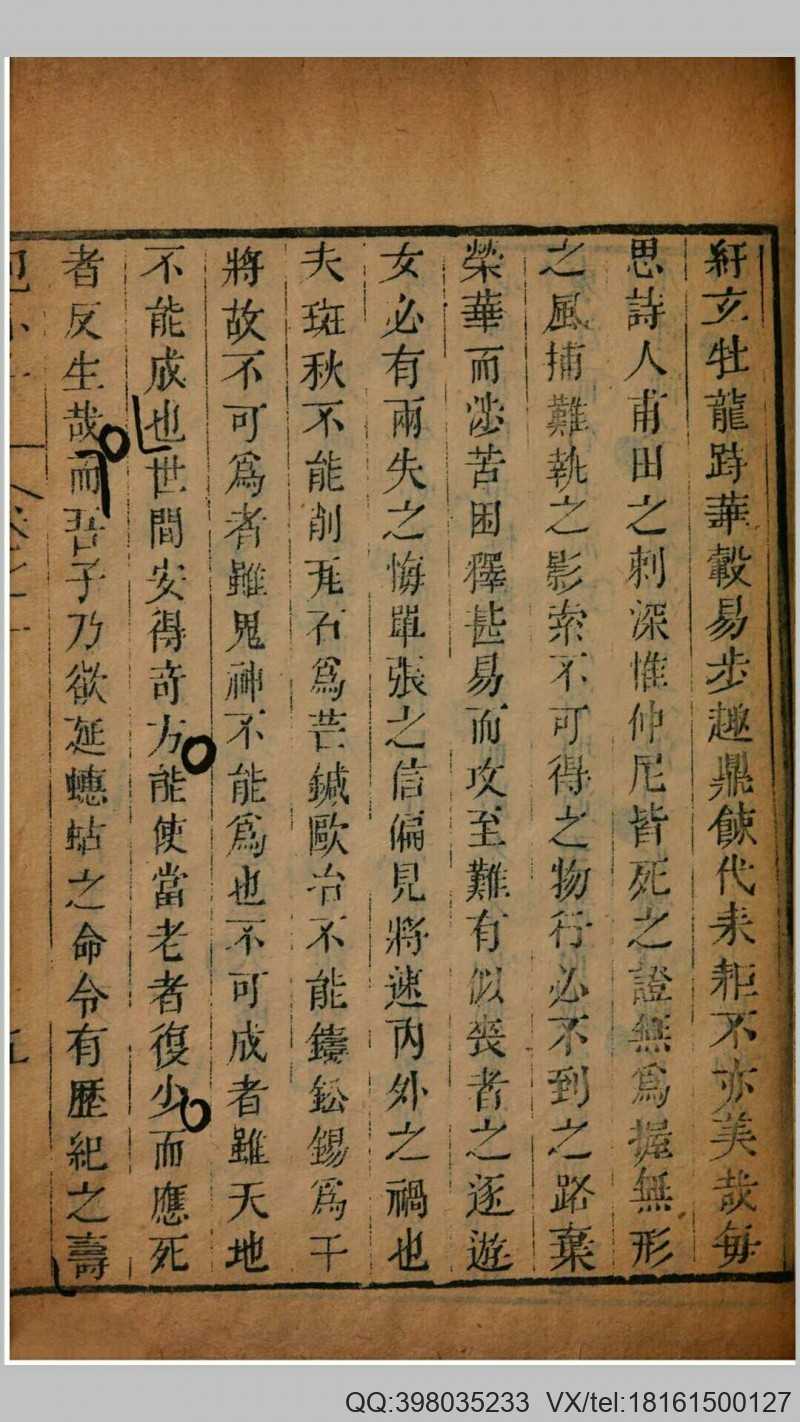 軒玄牡龍跱華轂易步趣鼎餗代耒耜不亦美哉每
思詩人甫田之刺深惟仲尼皆死之證無爲握無形
之風捕難執之影索不可得之物行必不到之路棄
榮華而涉苦困釋甚易而攻至難有似喪者之逐遊
女必有兩失之悔單張之信偏見將速內外之禍也
夫班秋不能削瓦石爲芒鍼歐冶不能鑄鈆錫爲干
將故不可爲者雖鬼神不能爲也不可成者雖天地
不能成也世間安得奇方能使當老者復少而應死
者反生哉而吾子乃欲延蟪蛄之命令有歷紀之壽
QQ:398035233 VX/tel:18161500127